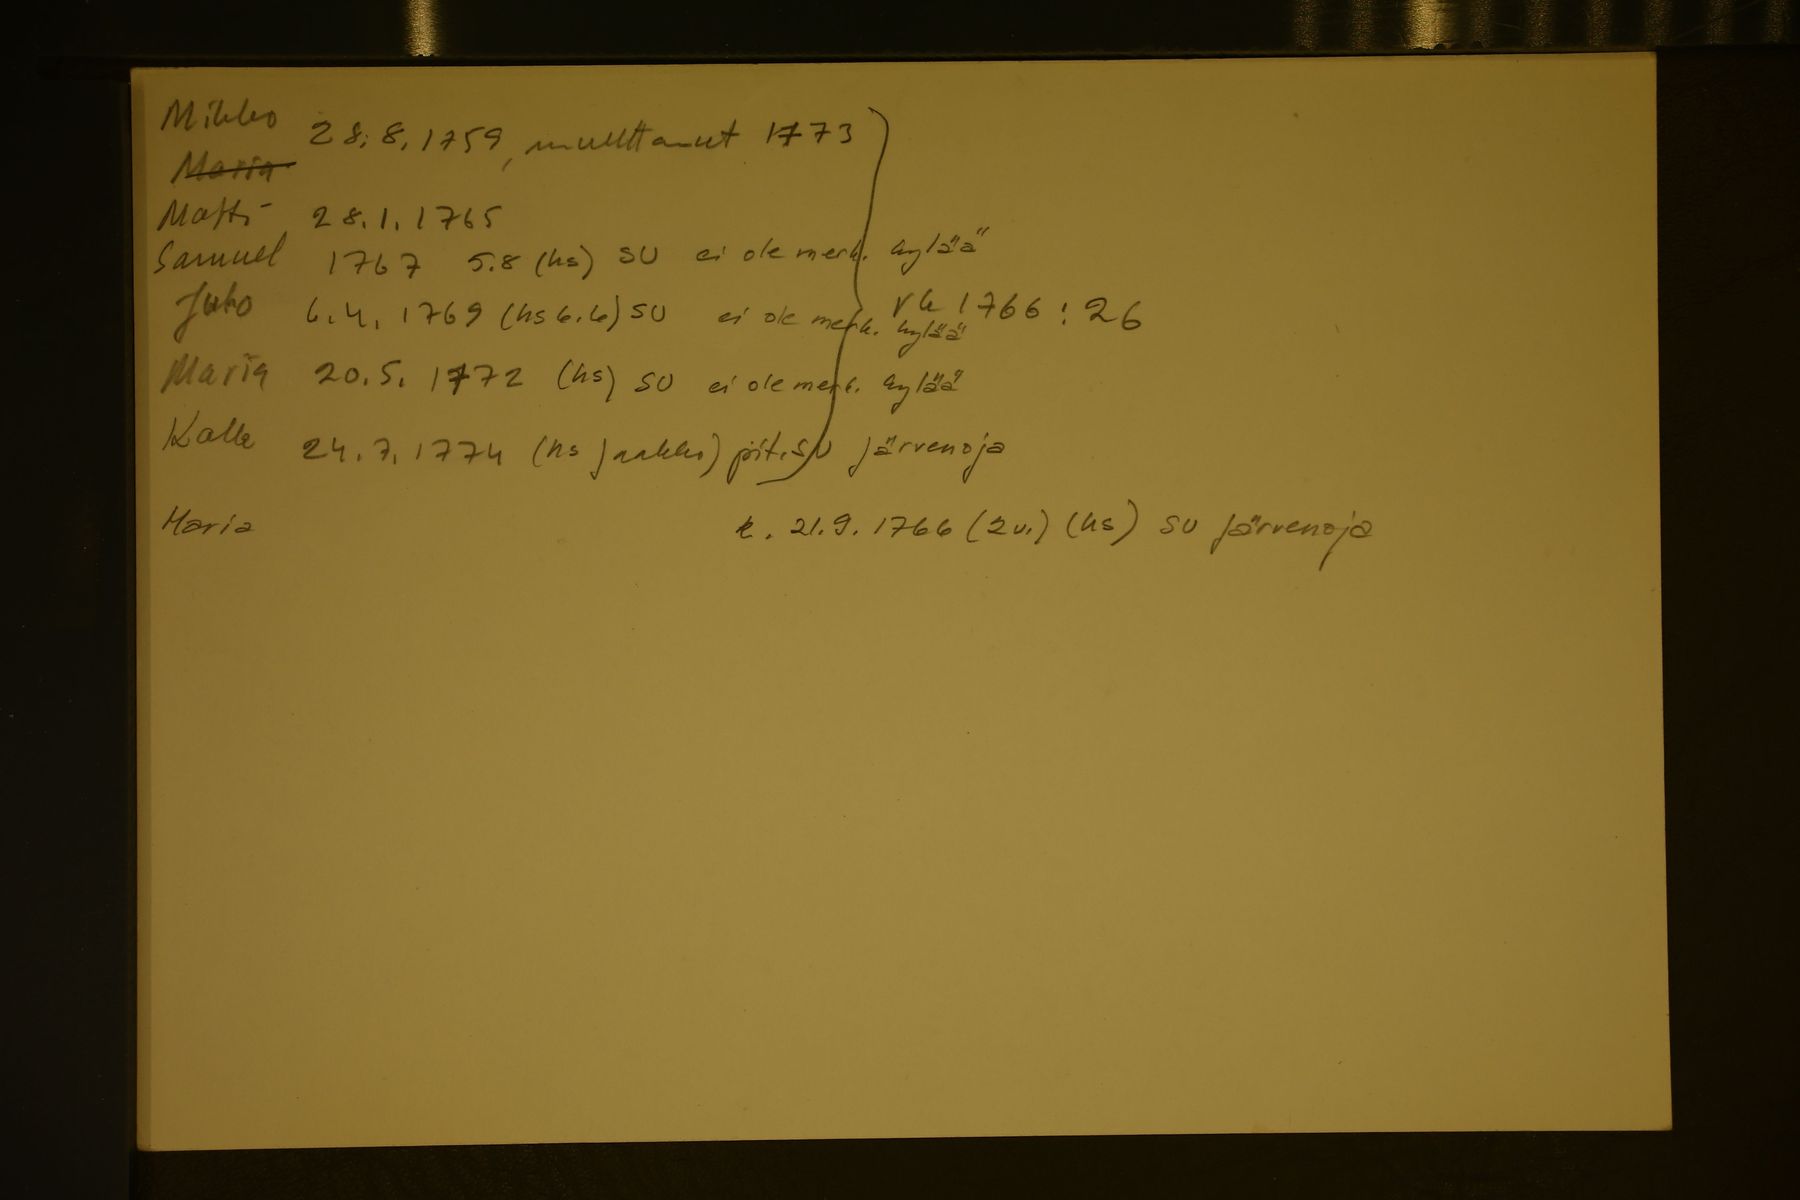 Mikko 28.8.1759, muuttanut 1773
Maria
Matti 28.1.1765
Samuel 1767 5.8 (hs) SU ei ole merk. kylää
Juho 6.4.1769 (hs 6.6) SU ei ole merk. kylää
rk 1766:26
Maria 20.5.1772 (hs) SU ei ole merk. kylää
Kalle 24.7.1774 (hs Jaakko) pit. SU Järvenoja
Maria k. 21.9.1766 (2 v.) (hs) SU Järvenoja